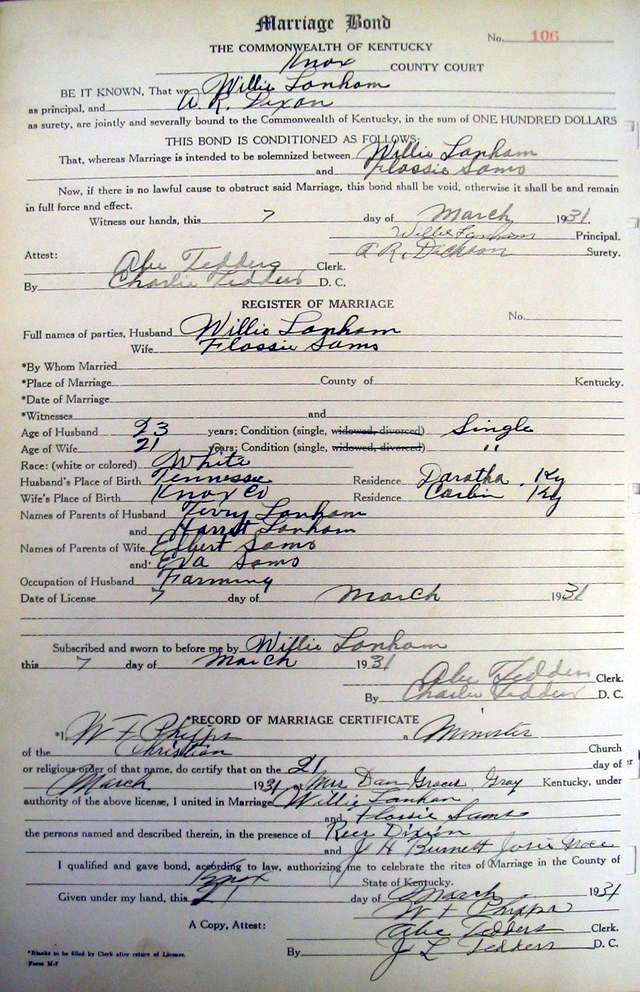 Marriage Bond
No. 106
THE COMMONWEALTH OF KENTUCKY
Knox COUNTY COURT
BE IT KNOWN, That we Willie Lanham
as principal, and A. R. Dixon
as surety, are jointly and severally bound to the Commonwealth of Kentucky, in the sum of ONE HUNDRED DOLLARS
THIS BOND IS CONDITIONED AS FOLLOWS:
That, whereas Marriage is intended to be solemnized between Willie Lanham
and Flossie Sams
Now, if there is no lawful cause to obstruct said Marriage, this bond shall be void, otherwise it shall be and remain
in full force and effect.
Witness our hands, this 7 day of March 1931.
Willie Lanham Principal.
Attest: A R. Dickson Surety.
Abe Tedders Clerk.
By Charlie Tedders D. C.
REGISTER OF MARRIAGE
No.
Full names of parties, Husband Willie Lanham
Wife Flossie Sams
*By Whom Married
*Place of Marriage County of Kentucky.
*Date of Marriage
*Witnesses and
Age of Husband 23 years; Condition (single, widowed, divorced) Single
Age of Wife 21 years; Condition (single, widowed, divorced) "
Race: (white or colored) White
Husband's Place of Birth Tennessee Residence Daratha, Ky
Wife's Place of Birth Knox Co Residence Corbin Ky
Names of Parents of Husband Terry Lanham
and Harret Lanham
Names of Parents of Wife Elbert Sams
and Eva Sams
Occupation of Husband Farming
Date of License 7 day of March 1931
Subscribed and sworn to before me by Willie Lanham
this 7 day of March 1931
Abe Tedders Clerk.
By Charlie Tedders D. C.
*RECORD OF MARRIAGE CERTIFICATE
*I, W F Phipps a Minister
of the Christian Church
or religious order of that name, do certify that on the 21 day of
March 1931 at Mrs Dan Graces Gray Kentucky, under
authority of the above license, I united in Marriage Willie Lanham
and Flossie Sams
the persons named and described therein, in the presence of Dixion
and J H Burnett Josie
I qualified and gave bond, according to law, authorizing me to celebrate the rites of Marriage in the County of
Knox State of Kentucky.
Given under my hand, this 21 day of March 1931
W F Phipps
A Copy, Attest: Abe Tedders Clerk.
By J L Tedders D. C.
*Blanks to be filed by Clerk after return of License.
Form M-7